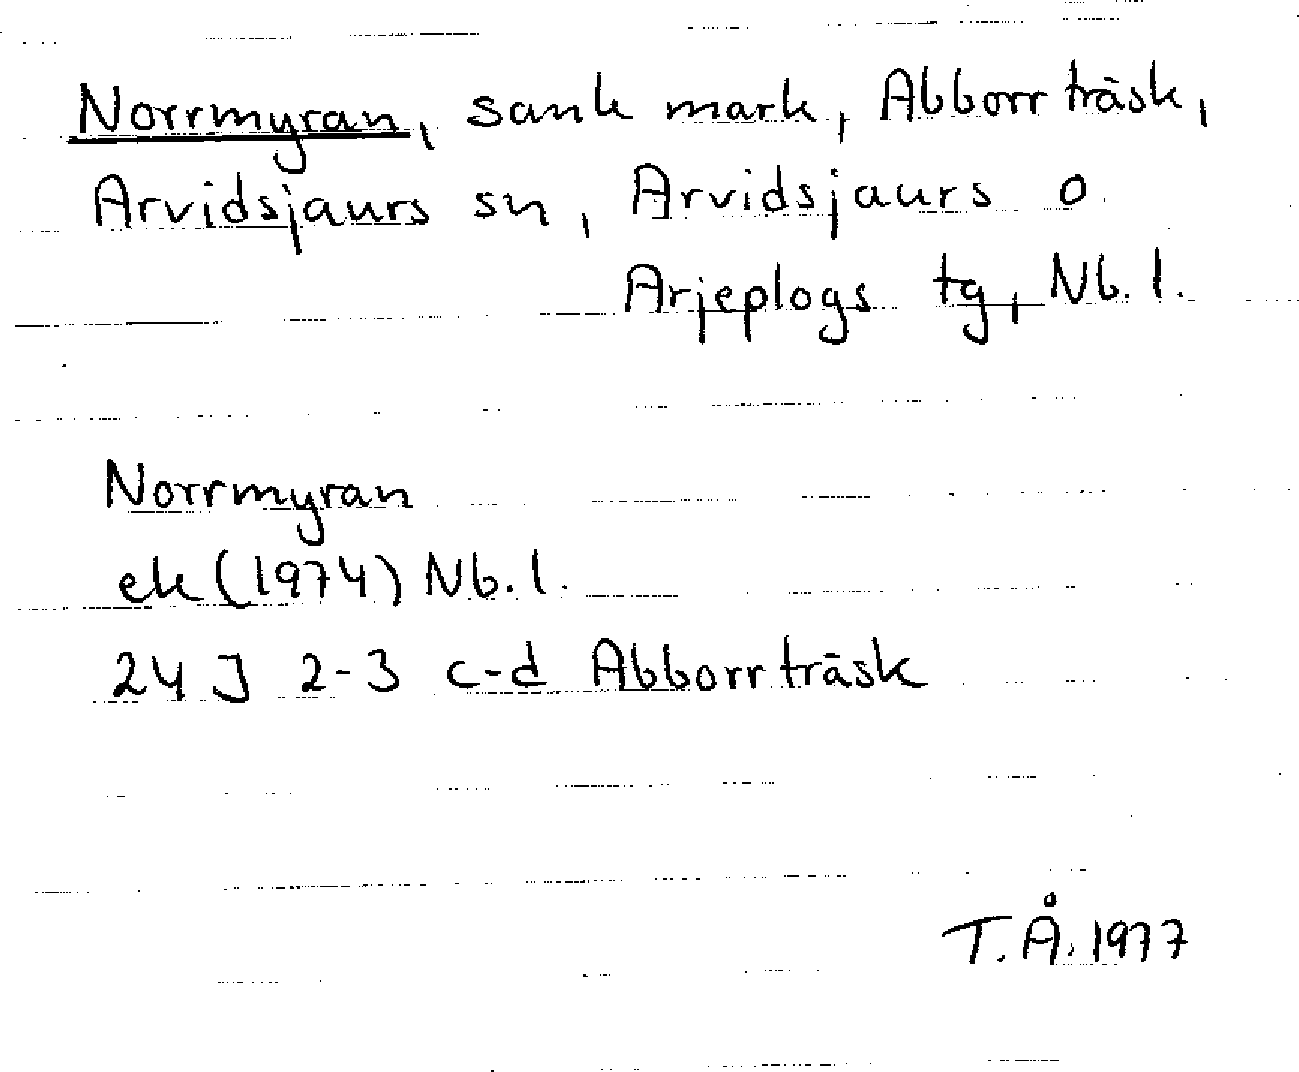 Norrmyran, sank mark, Abborrträsk,
Arvidsjaurs sn, Arvidsjaurs o
Arjeplogs tg, Nb. l.
Norrmyran
ek (1974) Nb. l.
24 J 2-3 c-d Abborrträsk
T.Å. 1977